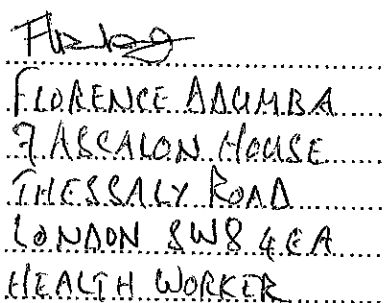 FLORENCE ADUMBA
7 ASCALON HOUSE
THESSALY ROAD
LONDON SW8 4EA
HEALTH WORKER